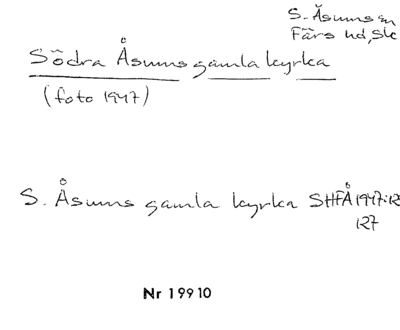 S. Åsums sn
Färs hd, Sk
Södra Åsums gamla kyrka
(foto 1947)
S. Åsums gamla kyrka SHFÅ 1947:12
127
Nr 19910